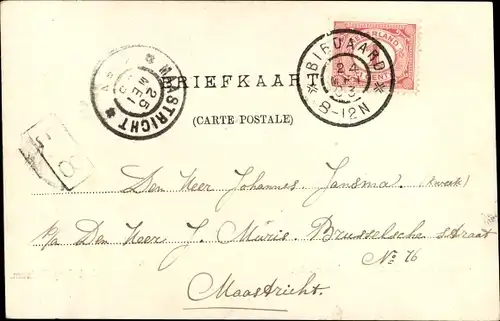 NEDERLAND
CENT
BIRDAARD
24 MEI 03
8-12N
MAASTRICHT
25 MEI 03
BRIEFKAART
(CARTE POSTALE)
8
Den Heer Johannes Jansma. (kweek)
p/a Den Heer J. Müris Brusselsche straat
No 76
Maastricht.